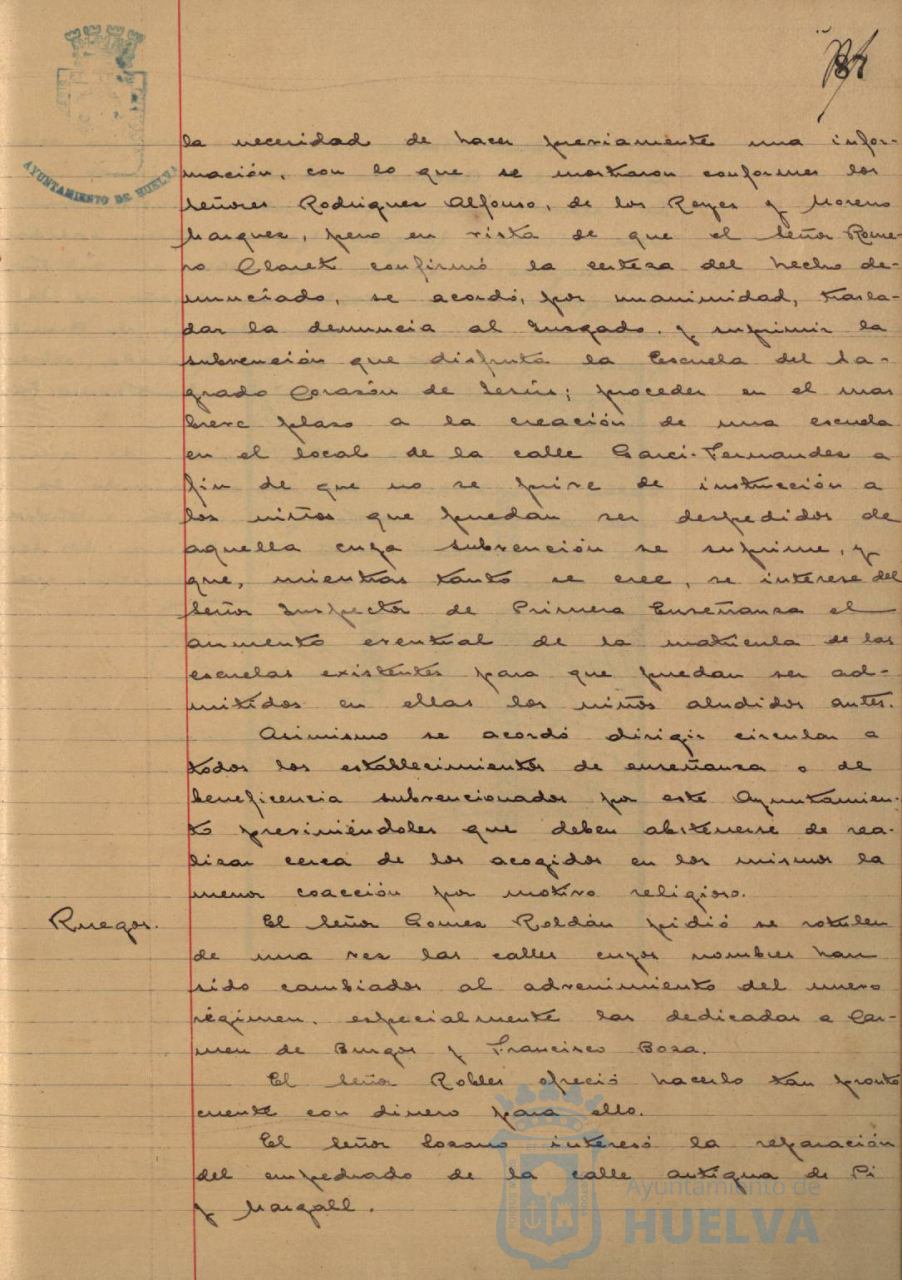 87
AYUNTAMIENTO DE HUELVA
la necesidad de hacer previamente una infor-
mación, con lo que se mostraron conformes los
Señores Rodriguez Alfonso, de los Reyes y Moreno
Marquez, pero en vista de que el Señor Rome-
ro Claret confirmó la certeza del hecho de-
nunciado, se acordó, por unanimidad, trasla-
dar la denuncia al Juzgado, y suprimir la
subvención que disfruta la Escuela del Sa-
grado Corazón de Jesús; proceder en el mas
breve plazo a la creación de una escuela
en el local de la calle Garci-Fernandez a
fin de que no se prive de instrucción a
los niños que puedan ser despedidos de
aquella cuya subvención se suprime, y
que, mientras tanto se cree, se interese del
Señor Inspector de Primera Enseñanza el
aumento eventual de la matrícula de las
escuelas existentes para que puedan ser ad-
mitidos en ellas los niños aludidos antes.
Asimismo se acordó dirigir circular a
todos los establecimientos de enseñanza o de
beneficencia subvencionados por este Ayuntamien-
to previniéndoles que deben abstenerse de rea-
lizar cerca de los acogidos en los mismos la
menor coacción por motivo religioso.
Ruegos.
El Señor Gomez Roldán pidió se rotulen
de una vez las calles cuyos nombres han
sido cambiados al advenimiento del nuevo
régimen, especialmente las dedicadas a Car-
men de Burgos y Francisco Boza.
El Señor Robles ofreció hacerlo tan pronto
cuente con dinero para ello.
El Señor Lozano interesó la reparación
del empedrado de la calle antigua de Pi
y Margall.
Ayuntamiento de
HUELVA